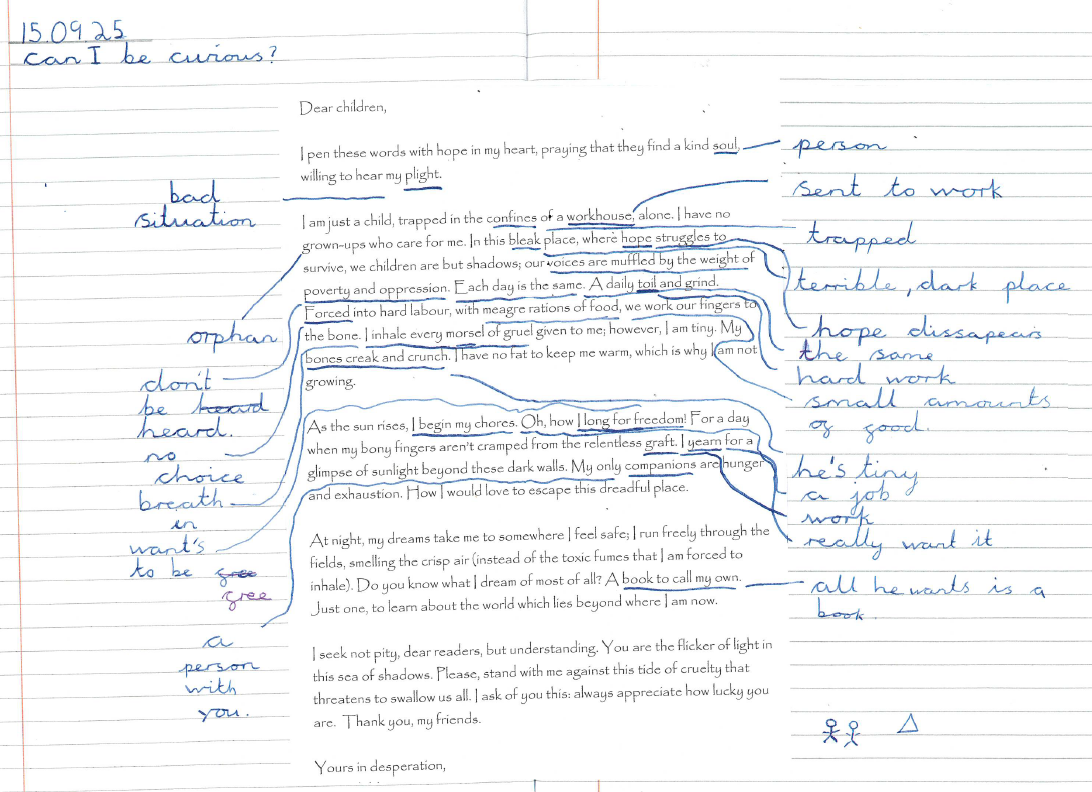 15.09.25
can I be curious?
Dear children,
I pen these words with hope in my heart, praying that they find a kind soul,
willing to hear my plight.
I am just a child, trapped in the confines of a workhouse, alone. I have no
grown-ups who care for me. In this bleak place, where hope struggles to
survive, we children are but shadows; our voices are muffled by the weight of
poverty and oppression. Each day is the same. A daily toil and grind.
Forced into hard labour, with meagre rations of food, we work our fingers to
the bone. I inhale every morsel of gruel given to me; however, I am tiny. My
bones creak and crunch. I have no fat to keep me warm, which is why I am not
growing.
As the sun rises, I begin my chores. Oh, how I long for freedom! For a day
when my bony fingers aren't cramped from the relentless graft. I yearn for a
glimpse of sunlight beyond these dark walls. My only companions are hunger
and exhaustion. How I would love to escape this dreadful place.
At night, my dreams take me to somewhere I feel safe; I run freely through the
fields, smelling the crisp air (instead of the toxic fumes that I am forced to
inhale). Do you know what I dream of most of all? A book to call my own.
Just one, to learn about the world which lies beyond where I am now.
I seek not pity, dear readers, but understanding. You are the flicker of light in
this sea of shadows. Please, stand with me against this tide of cruelty that
threatens to swallow us all. I ask of you this: always appreciate how lucky you
are. Thank you, my friends.
Yours in desperation,
bad
situation
orphan
don't
be heard
heard.
no
choice
breath
in
want's
to be free
free
a
person
with
you.
person
sent to work
trapped
terrible, dark place
hope dissapears
the same
hard work
small amounts
of good.
he's tiny
a job
work
really want it
all he wants is a
book